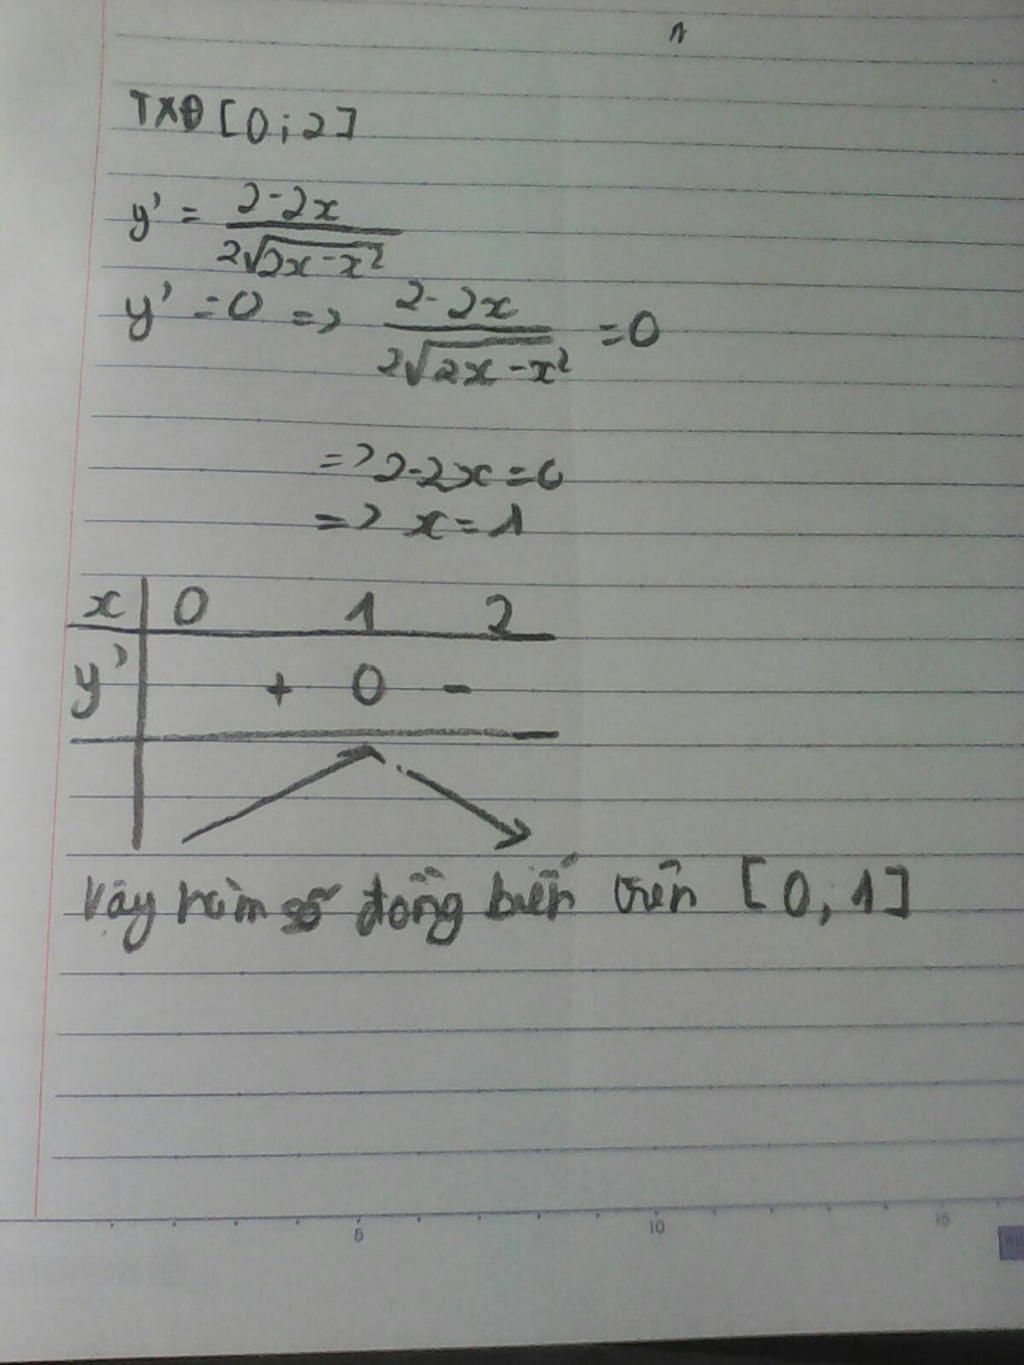 TXĐ [0;2]
y' = \frac{2-2x}{2\sqrt{2x-x^2}}
y' = 0 => \frac{2-2x}{2\sqrt{2x-x^2}} = 0
=> 2-2x=0
=> x=1
x 0 1 2
y' + 0 -
Vậy hàm số đồng biến trên [0,1]
5 10 15